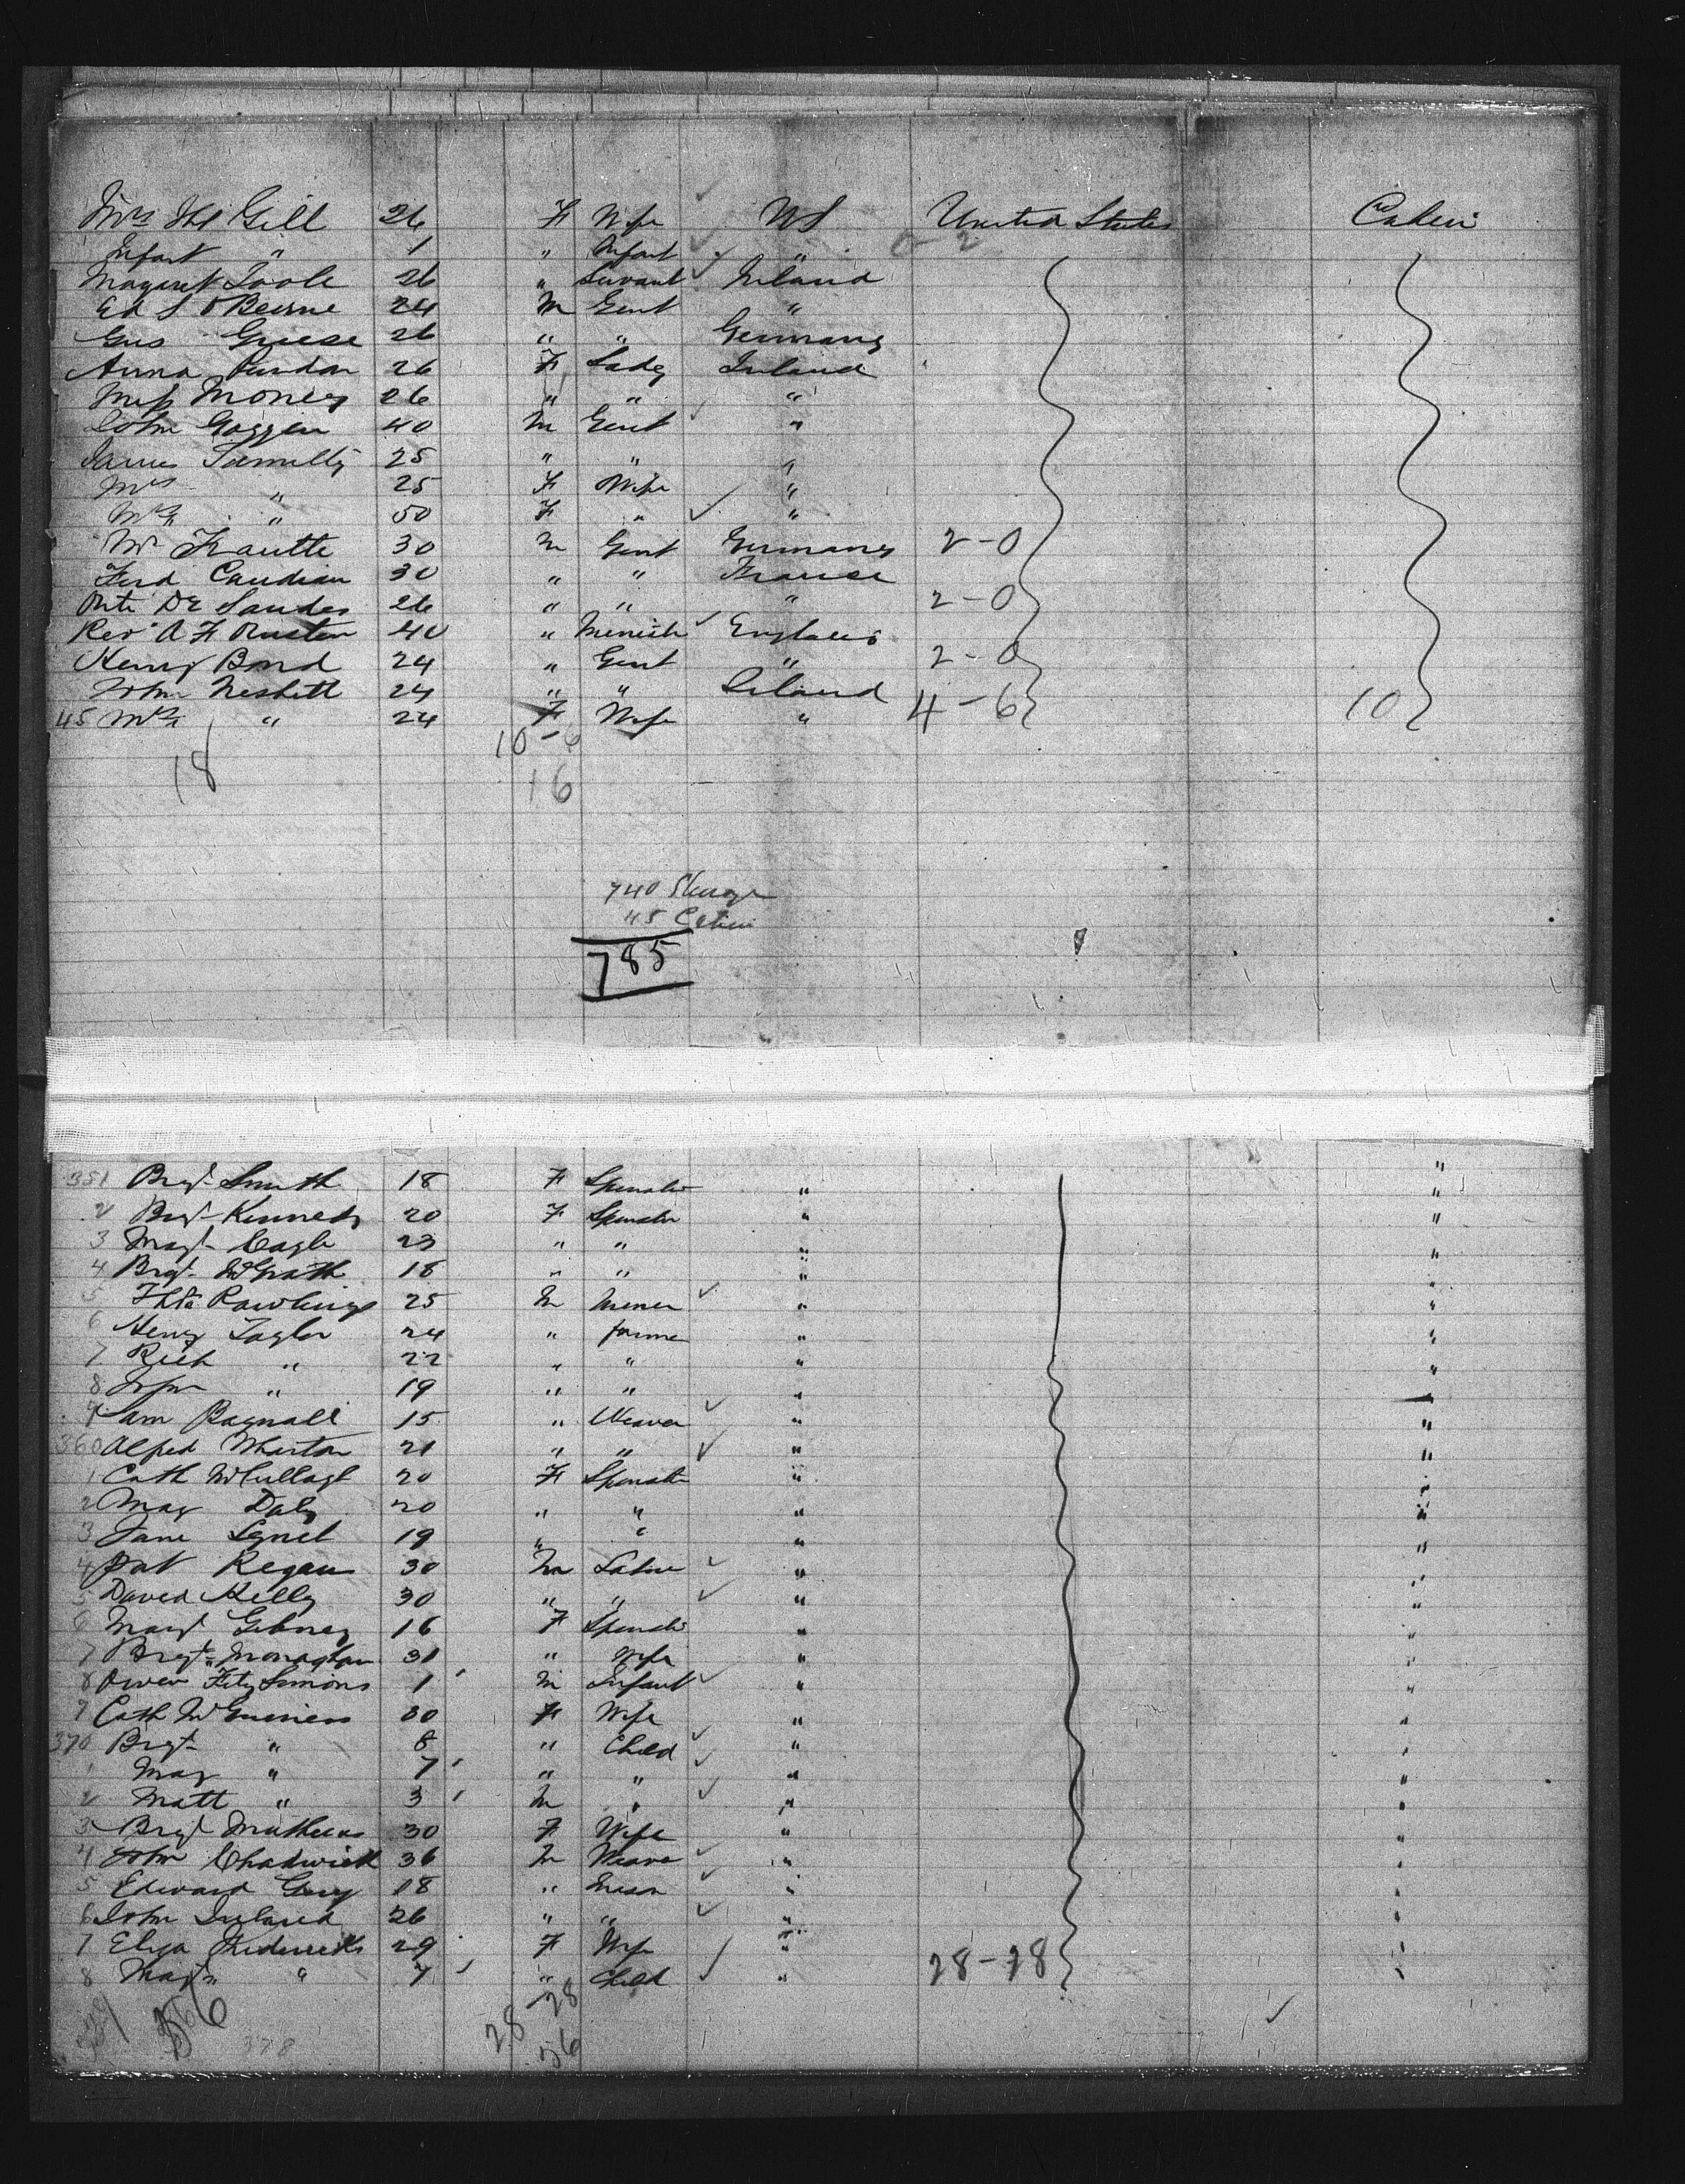 Mrs Thl Gill 26 F Wife US United States Cabin
Infant " 1 " Infant " 0-2
Margaret Toole 26 " Servant Ireland
Ed S O Beirne 24 M Gent "
Gus Griese 26 " " Germany
Anna 26 F Lady Ireland
Miss Money 26 " " "
John Goggin 40 M Gent "
James 25 " " "
Mrs " 25 F Wife "
Mrs " 50 F " "
Mr Trautte 30 M Gent Germany 2-0
Ferd Caudian 30 " " France
De Landes 26 " " " 2-0
Rev A F 40 " Minist England
Henry Bond 24 " Gent " 2-0
John Nesbitt 24 " " Ireland
45 Mrs " 24 F Wife " 4-6 10
10-6
18 16
740 Sterage
45 Cabin
785
351 Brgt Smith 18 F Spinster " "
2 Brgt Kennedy 20 F Spinster " "
3 Magt Cagle 23 " " " "
4 Brgt McGrath 18 " " " "
5 Rawlings 25 M Miner " "
6 Henry Taylor 24 " farmer " "
7 Rich " 22 " " " "
8 John " 19 " " " "
9 Sam Bagnall 15 " Weaver " "
360 Alfred Wharton 21 " " " "
1 Cath McCullagh 20 F Spinster " "
2 May Daly 20 " " " "
3 Jane Lynch 19 " " " "
4 Pat Regan 30 M Labor " "
5 David Kelly 30 " " " "
6 Margt Gibney 16 F Spinster " "
7 Brgt Monaghan 31 " Wife " "
8 Owen Fitz Simons 1 M Infant " "
9 Cath McGuiness 30 F Wife " "
370 Brgt " 8 " Child " "
1 May " 7 " " " "
2 Matt " 3 M " " "
3 Brgt Mathews 30 F Wife " "
4 John Chadwick 36 M Weaver " "
5 Edward 18 " Mason " "
6 John Ireland 26 " " " "
7 Eliza 29 F Wife " "
8 Magt " 7 " Child " 28-28 "
28-28
56 378 56